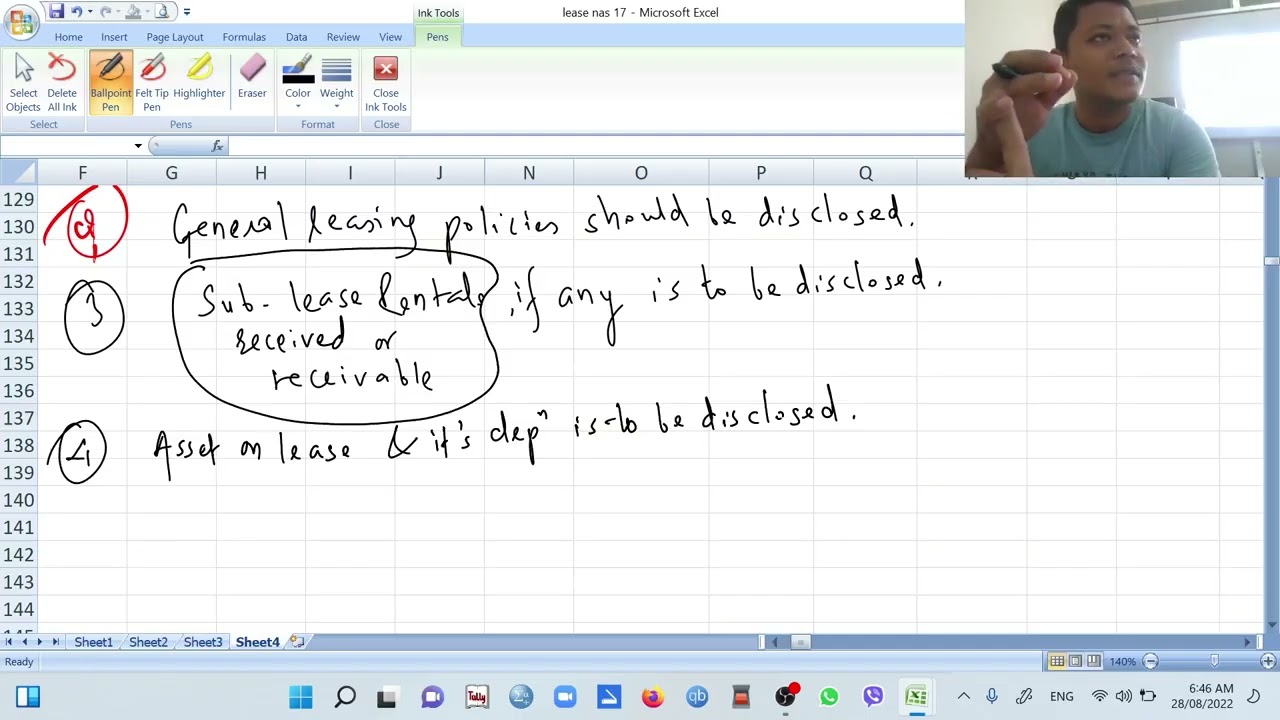 Ink Tools
lease nas 17 - Microsoft Excel
Home Insert Page Layout Formulas Data Review View Pens
Select Objects
Delete All Ink
Ballpoint Pen
Felt Tip Pen
Highlighter
Eraser
Color
Weight
Close Ink Tools
Select Pens Format Close
fx
F G H I J N O P Q
129
130 2 General leasing policies should be disclosed.
131
132
133 3 Sub-lease Rentals, if any is to be disclosed.
134 received or
135
136 receivable
137
138 4 Asset on lease & it's depⁿ is to be disclosed.
139
140
141
142
143
144
Sheet1 Sheet2 Sheet3 Sheet4
Ready 140%
Tally qb ENG 6:46 AM
28/08/2022